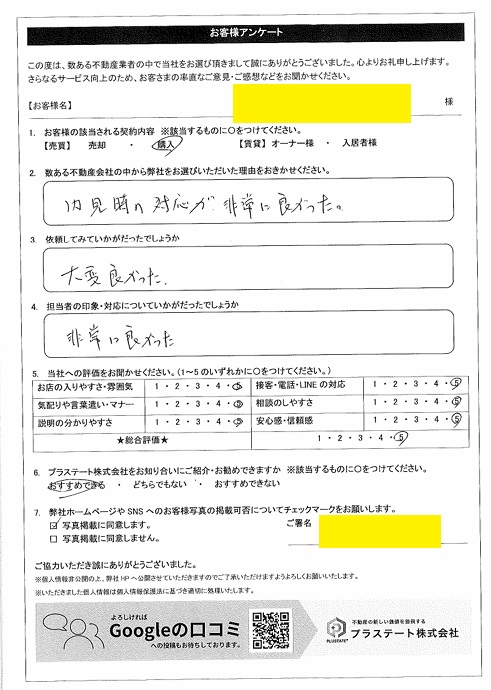 お客様アンケート
この度は、数ある不動産業者の中で当社をお選び頂きまして誠にありがとうございました。心よりお礼申し上げます。
さらなるサービス向上のため、お客さまの率直なご意見・ご感想などをお聞かせください。
【お客様名】 様
1. お客様の該当される契約内容 ※該当するものに○をつけてください。
【売買】 売却 ・ 購入 【賃貸】オーナー様 ・ 入居者様
2. 数ある不動産会社の中から弊社をお選びいただいた理由をおきかせください。
内見時の対応が非常に良かった。
3. 依頼してみていかがだったでしょうか
大変良かった。
4. 担当者の印象・対応についていかがだったでしょうか
非常に良かった
5. 当社への評価をお聞かせください。(1～5のいずれかに○をつけてください。)
お店の入りやすさ・雰囲気 1・2・3・4・5 接客・電話・LINEの対応 1・2・3・4・5
気配りや言葉遣い・マナー 1・2・3・4・5 相談のしやすさ 1・2・3・4・5
説明の分かりやすさ 1・2・3・4・5 安心感・信頼感 1・2・3・4・5
★総合評価★ 1・2・3・4・5
6. プラステート株式会社をお知り合いにご紹介・お勧めできますか ※該当するものに○をつけてください。
おすすめできる ・ どちらでもない ・ おすすめできない
7. 弊社ホームページや SNS へのお客様写真の掲載可否についてチェックマークをお願いします。
☑ 写真掲載に同意します。 ご署名
□ 写真掲載に同意しません。
ご協力いただき誠にありがとうございました。
※個人情報非公開の上、弊社 HP へ公開させていただきますのでご了承いただけますようよろしくお願いいたします。
※いただきました個人情報は個人情報保護法に基づき適切に処理いたします。
よろしければ
Googleの口コミ
への投稿もお待ちしております。
不動産の新しい価値を提供する
プラステート株式会社
PLUSTATE